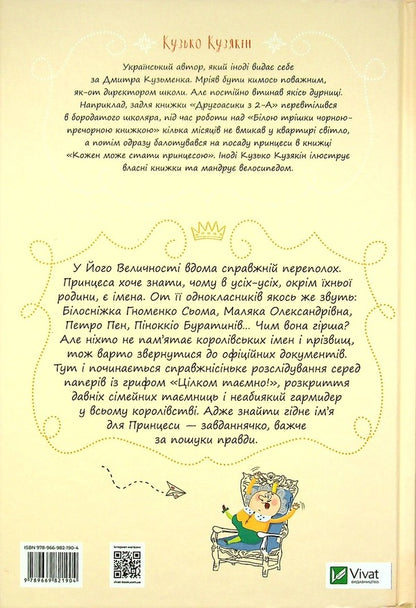 Кузько Кузякін
Український автор, який іноді видає себе
за Дмитра Кузьменка. Мріяв бути кимось поважним,
як-от директором школи. Але постійно втинав якісь дурниці.
Наприклад, задля книжки «Другоасики з 2-А» перевтілився
в бородатого школяра, під час роботи над «Білою трішки чорною-
пречорною книжкою» кілька місяців не вмикав у квартирі світло,
а потім одразу балотувався на посаду принцеси в книжці
«Кожен може стати принцесою». Іноді Кузько Кузякін ілюструє
власні книжки та мандрує велосипедом.
У Його Величності вдома справжній переполох.
Принцеса хоче знати, чому в усіх-усіх, окрім їхньої
родини, є імена. От її однокласників якось же звуть:
Білосніжка Гноменко Сьома, Маляка Олександрівна,
Петро Пен, Піноккіо Буратінів... Чим вона гірша?
Але ніхто не пам'ятає королівських імен і прізвищ,
тож варто звернутися до офіційних документів.
Тут і починається справжнісіньке розслідування серед
паперів із грифом «Цілком таємно!», розкриття
давніх сімейних таємниць і неабиякий гармидер
у всьому королівстві. Адже знайти гідне ім'я
для Принцеси — завданнячко, важче
за пошуки правди.
ISBN 978-966-982-190-4
9789669821904
Vivat
ВИДАВНИЦТВО